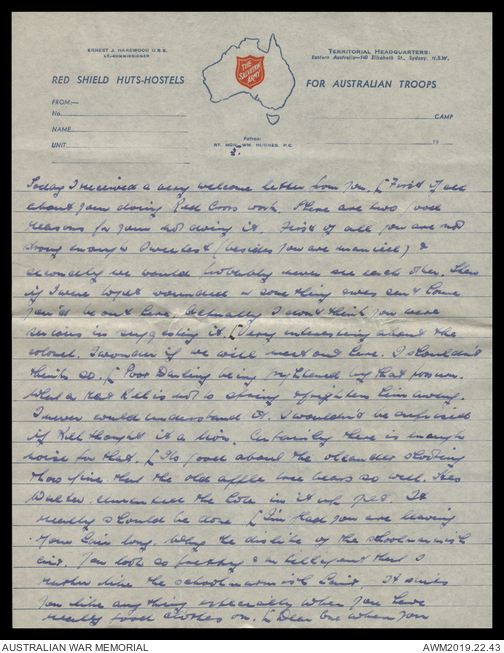 ERNEST J. HAREWOOD O.B.E.
LT.-COMMISSIONER
TERRITORIAL HEADQUARTERS:
Eastern Australia—140 Elizabeth St., Sydney. N.S.W.
RED SHIELD HUTS-HOSTELS
THE SALVATION ARMY
FOR AUSTRALIAN TROOPS
FROM:—
No.
CAMP
NAME
Patron:
UNIT
RT. HON. WM. HUGHES, P.C.
19
Today I received a very welcome letter from you. [First of all
about your doing Red Cross work. There are two good
reasons for your not doing it. First of all you are not
strong enough I contest (besides you are married) &
secondly we would probably never see each other. Then
if I were to get wounded or some thing & was sent home
you'd be out here. Actually I don't think you were
serious in suggesting it. [Very interesting about the
colonel. I wonder if we will meet out here. I shouldn't
think so. [Poor Darling being frightened by that possum.
What a that Kill is not so strong & frightens him away.
I never would understand it. I wouldn't be surprised
if Kill thought it a lion. Certainly there is enough
noise for that. [Its good about the oleander shooting
& how fine that the old apple tree bears so well. Has
Walter cemented the hole in it up yet. It
really should be done. [I'm glad you are leaving
your hair long. Why the dislike of the schoolmarmish
air. You look so pretty & intelligent that I
rather like the schoolmarmish hair. It suits
you like anything especially when you have
really good clothes on. [Dear One when you
AUSTRALIAN WAR MEMORIAL
AWM2019.22.43